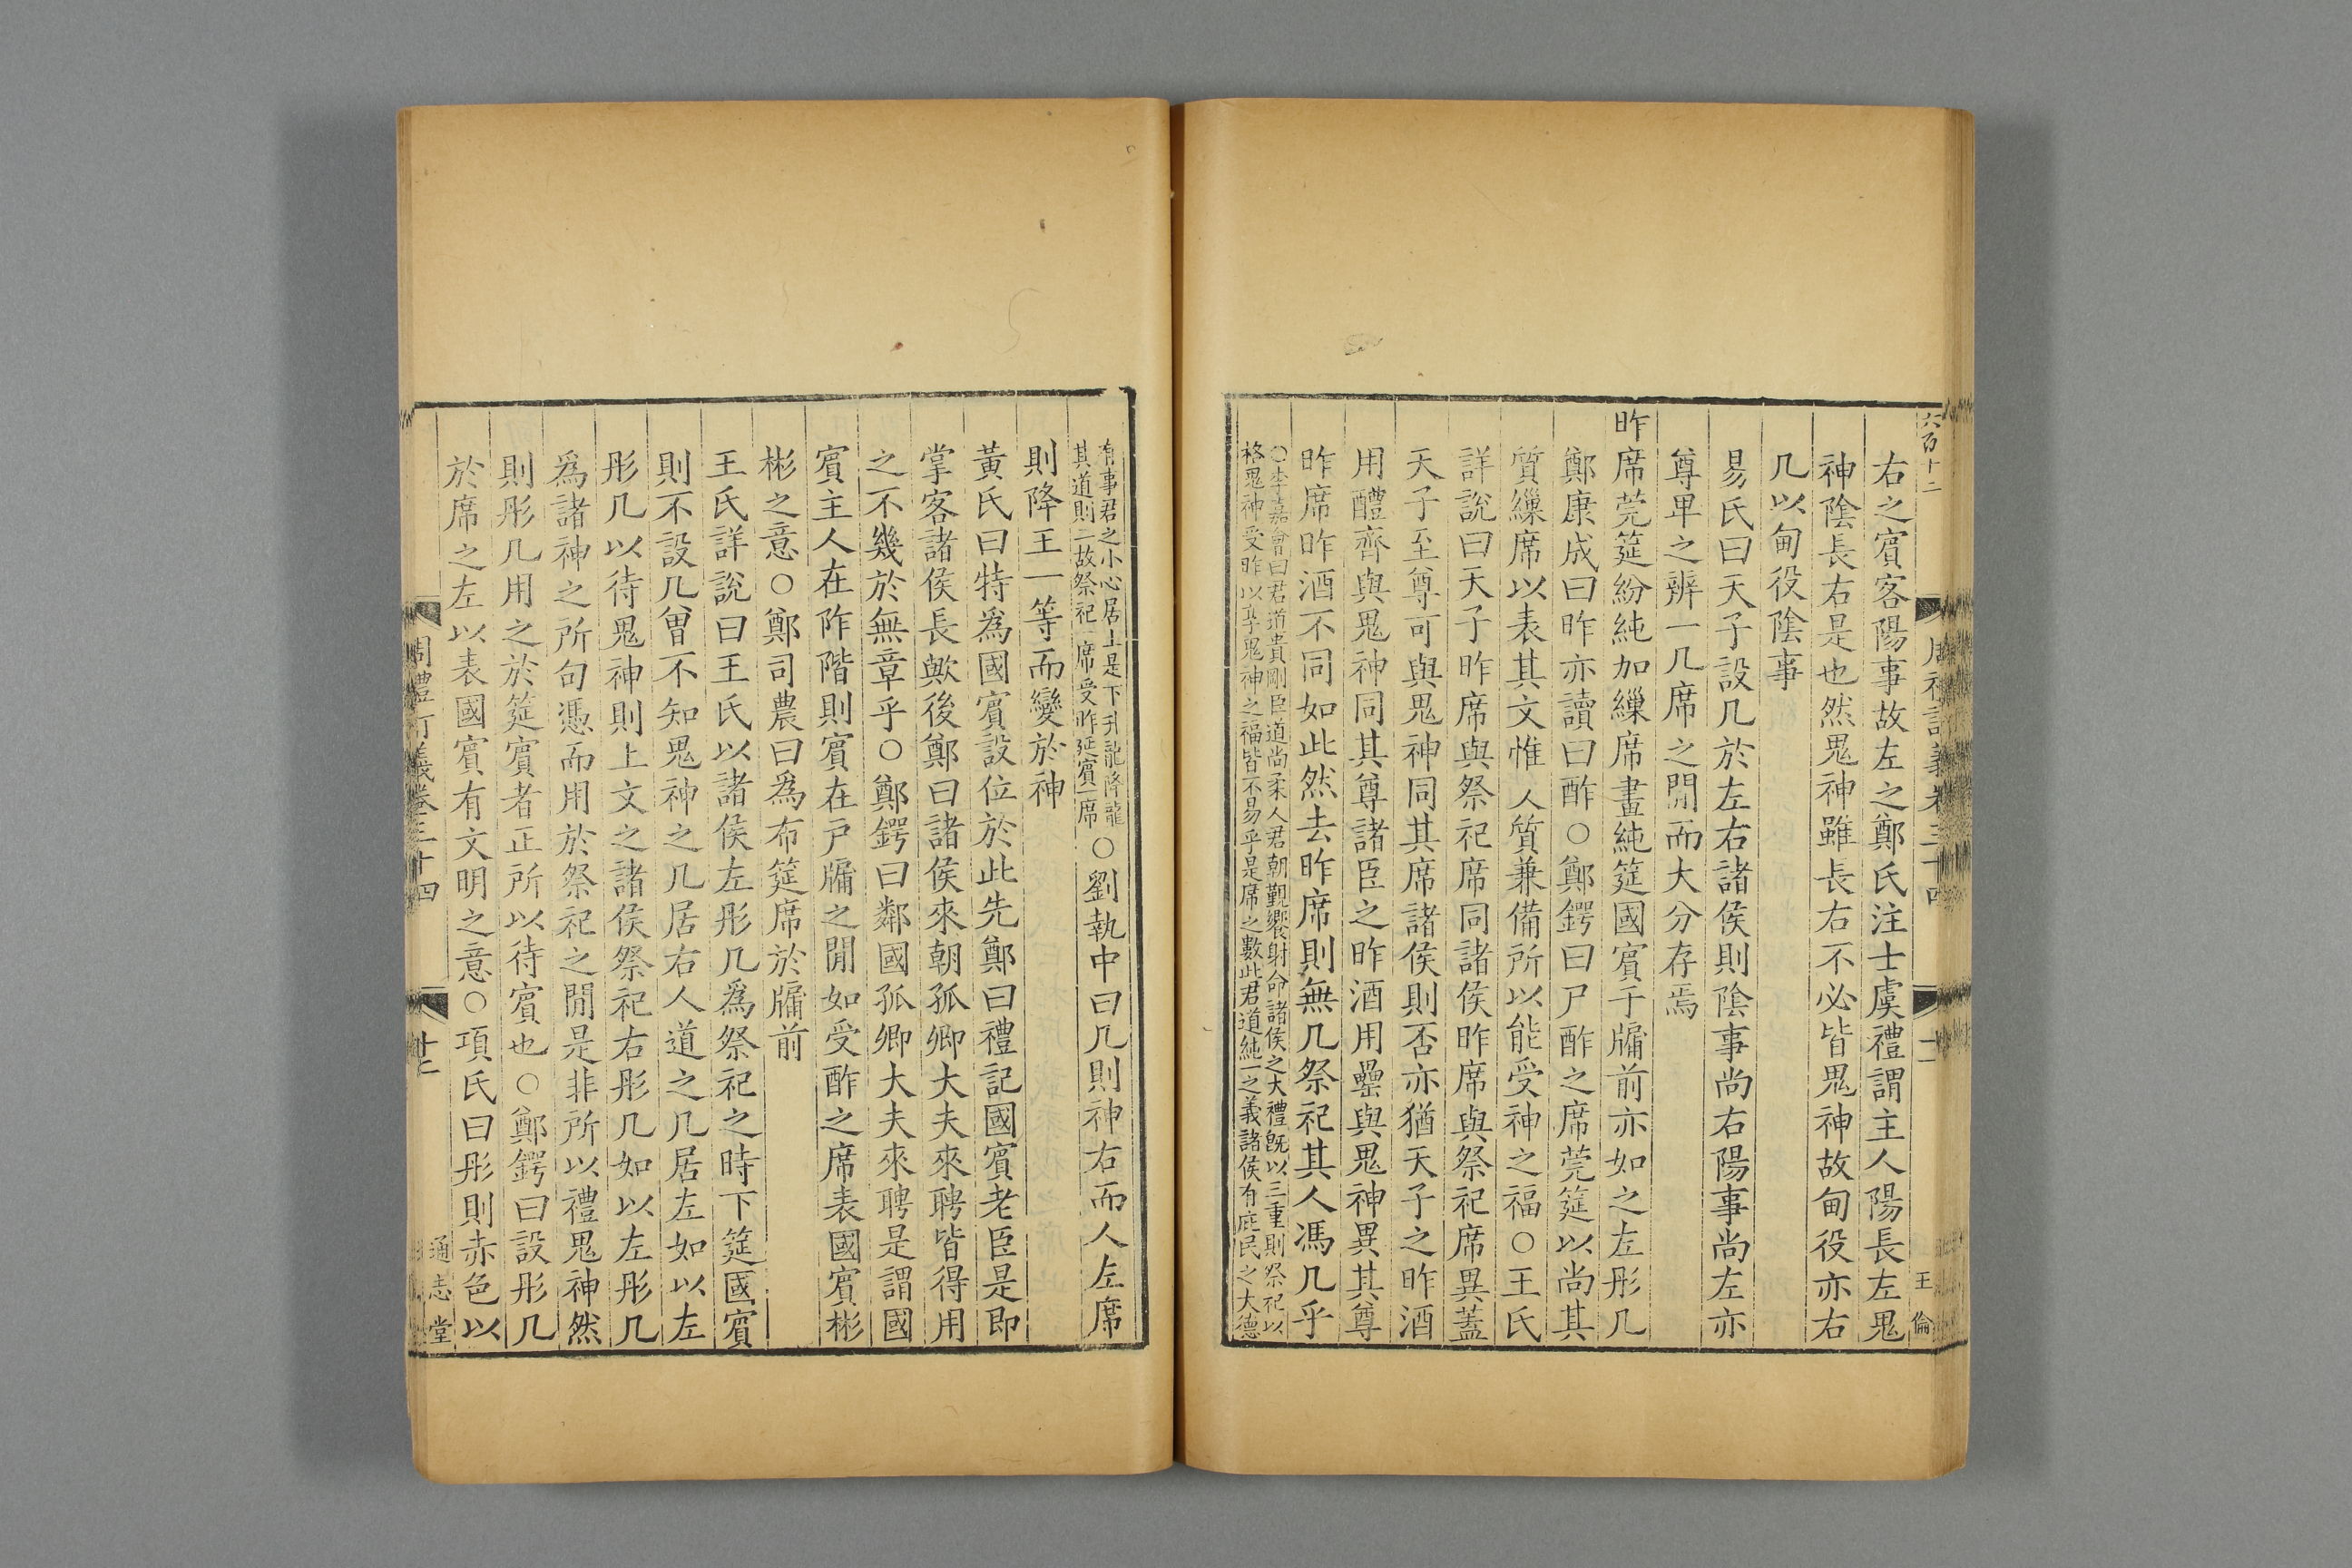 六百十二
王倫
右之賓客陽事故左之鄭氏注士虞禮謂主人陽長左鬼
神陰長右是也然鬼神雖長右不必皆鬼神故甸役亦右
几以甸役陰事
易氏曰天子設几於左右諸侯則陰事尚右陽事尚左亦
尊卑之辨一几席之閒而大分存焉
昨席莞筵紛純加繅席畫純筵國賓于牖前亦如之左彤几
鄭康成曰昨亦讀曰酢○鄭鍔曰尸酢之席莞筵以尚其
質繅席以表其文惟人質兼備所以能受神之福○王氏
詳說曰天子昨席與祭祀席同諸侯昨席與祭祀席異蓋
天子至尊可與鬼神同其席諸侯則否亦猶天子之昨酒
用醴齊與鬼神同其尊諸臣之昨酒用罍與鬼神異其尊
昨席昨酒不同如此然去昨席則無几祭祀其人馮几乎
○李嘉會曰君道貴剛臣道尚柔人君朝覲饗射命諸侯之大禮既以三重則祭祀以
格鬼神受昨以享鬼神之福皆不易乎是席之數此君道純一之義諸侯有庇民之大德
有事君之小心居上是下升龍降龍
其道則二故祭祀一席受昨筵賓一席○劉執中曰几則神右而人左席
則降王一等而變於神
黃氏曰特為國賓設位於此先鄭曰禮記國賓老臣是即
掌客諸侯長歟後鄭曰諸侯來朝孤卿大夫來聘皆得用
之不幾於無章乎○鄭鍔曰鄰國孤卿大夫來聘是謂國
賓主人在阼階則賓在戶牖之閒如受酢之席表國賓彬
彬之意○鄭司農曰為布筵席於牖前
王氏詳說曰王氏以諸侯左彤几為祭祀之時下筵國賓
則不設几曾不知鬼神之几居右人道之几居左如以左
彤几以待鬼神則上文之諸侯祭祀右彤几如以左彤几
為諸神之所句憑而用於祭祀之閒是非所以禮鬼神然
則彤几用之於筵賓者正所以待賓也○鄭鍔曰設彤几
於席之左以表國賓有文明之意○項氏曰彤則赤色以
周禮訂義卷三十四
十七
通志堂